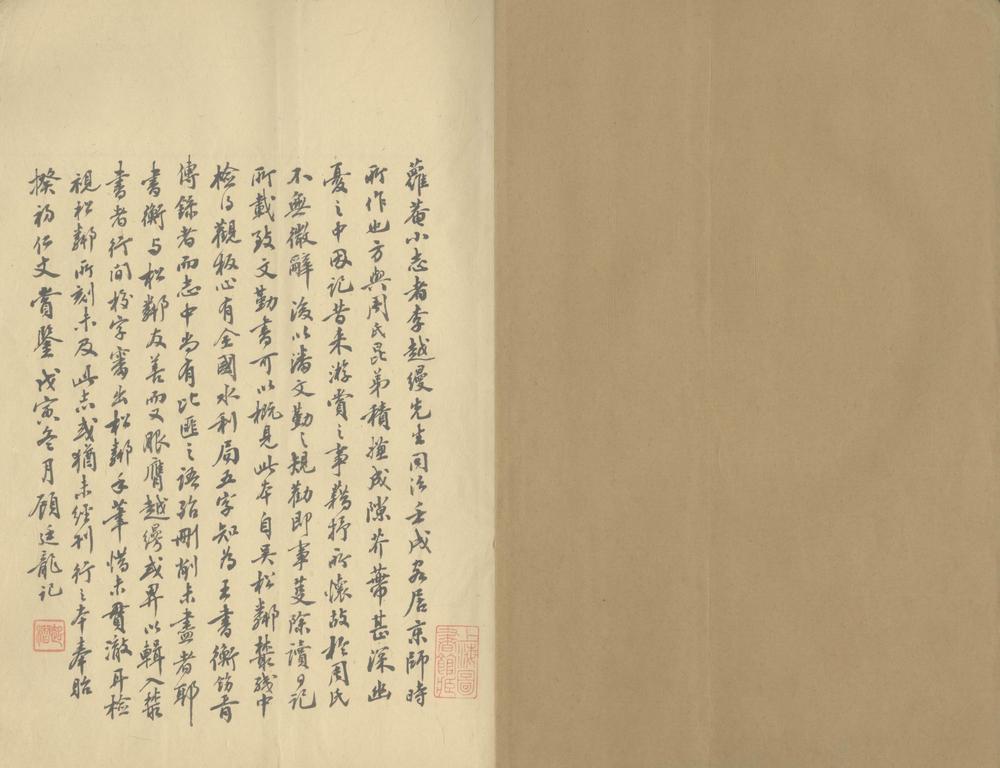 蘿菴小志者李越縵先生同治壬戌客居京師時
所作也方與周氏昆弟積嫌成隙芥蔕甚深幽
憂之中因記昔來游賞之事藉抒所懷故於周氏
不無微辭後以潘文勤之規勸即事芟除讀日記
所載致文勤書可以概見此本自吳松鄰叢殘中
檢得觀板心有全國水利局五字知為王書衡飭胥
傳錄者而志中尚有比匪之語殆刪削未盡者耶
書衡與松鄰友善而又服膺越縵或畀以輯入叢
書者行間校字審出松鄰手筆惜未貫澈耳檢
視松鄰所刻未及此志或猶未經刊行之本奉貽
揆初仁丈賞鑒戊寅冬月顧廷龍記
上海圖書館藏